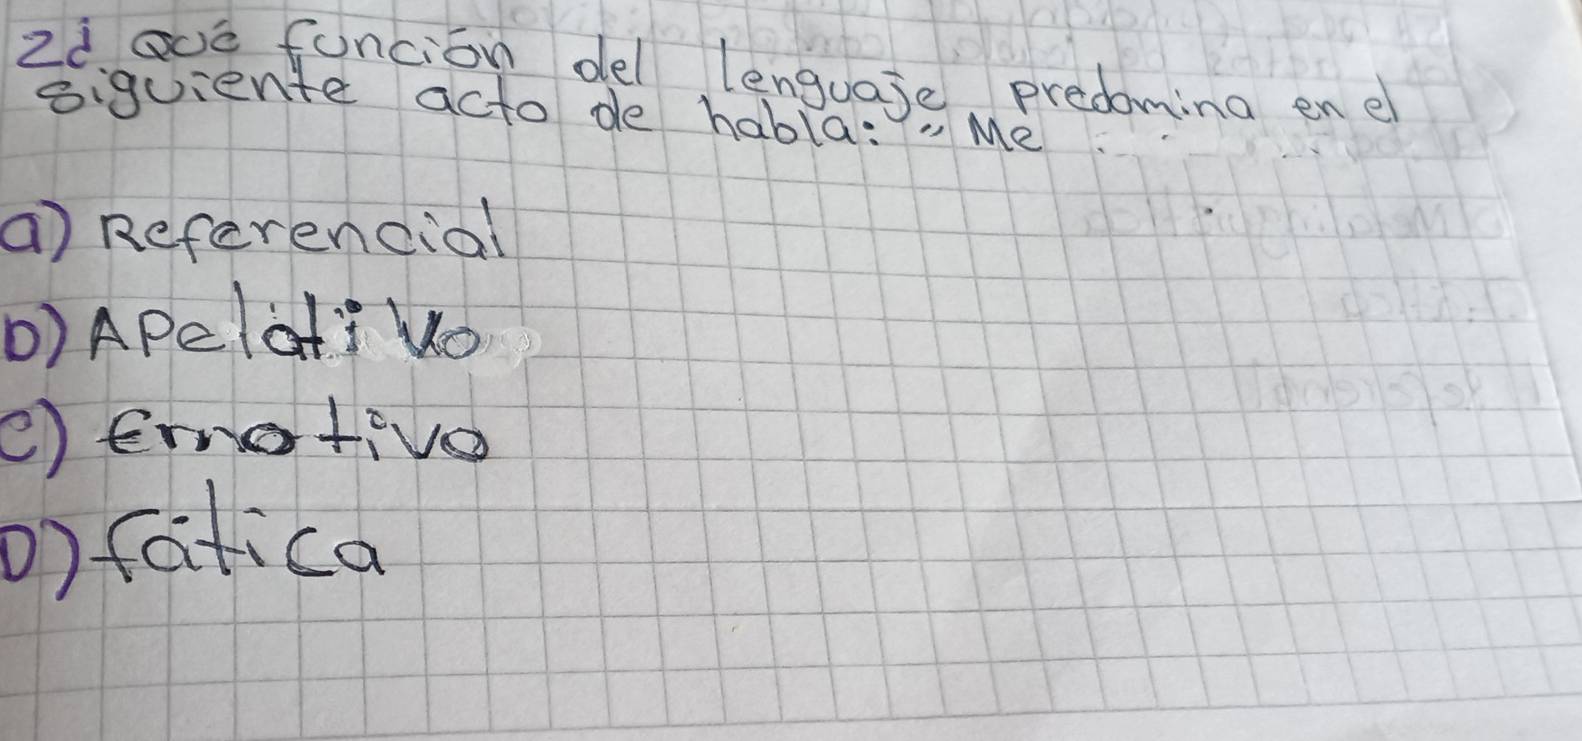 2¿ Qué función del lenguaje predomina en el
siguiente acto de habla: " Me
a) Referencial
b) Apelativo
c) Emotivo
D) fática